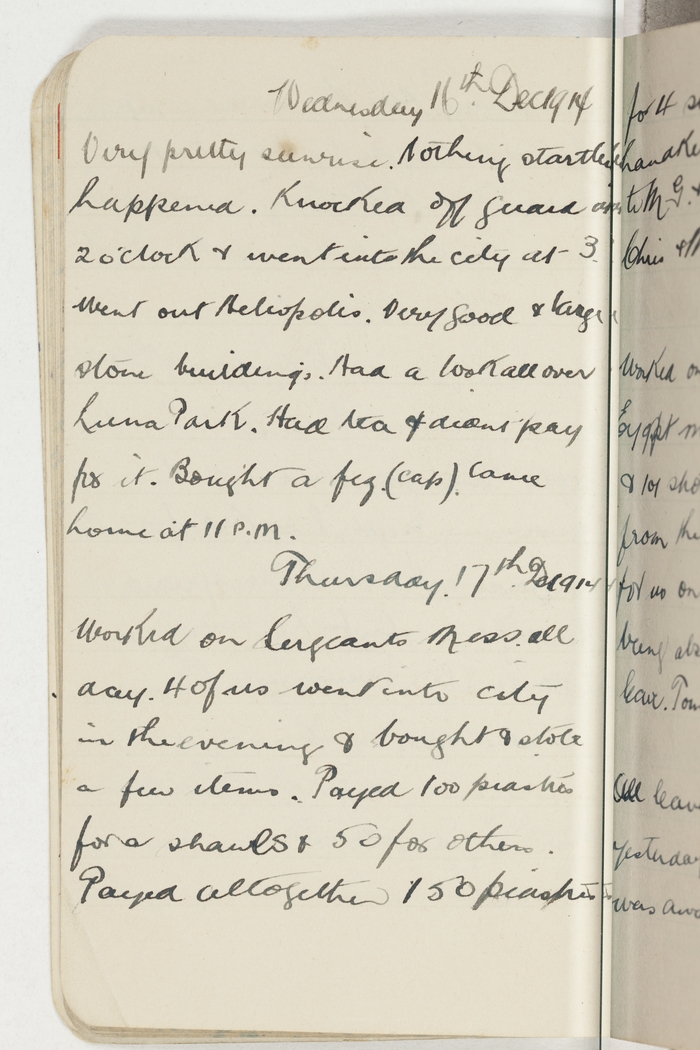 Wednesday 16th. Dec 1914
Very pretty sunrise. Nothing startled
happened. Knocked off guard
2 o'clock & went into the city at 3
Went out Heliopolis. Very good & large
stone buildings. Had a look all over
Luna Park. Had tea & didnt pay
for it. Bought a feg. (cap). Came
home at 11 P.M.
Thursday. 17th Dec 1914
Worked on Sergeants Mess. all
day. 4 of us went into city
in the evening & bought & stole
a few items. Payed 100 piastres
for a shawls & 50 for others.
Payed altogether 150 piastres
for 4
to M G. &
Chris &
Worked on
Egypt
& 101
from the
for us on
being
leave.
All leave
yesterday
was